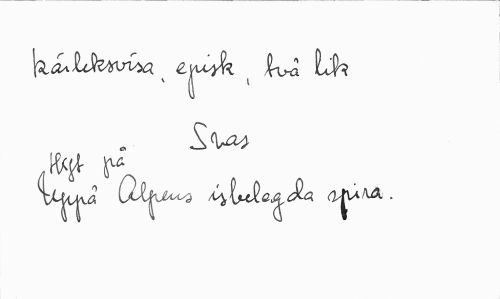 Kärleksvisa, episk, två lik
Svar
Högt på
Uppå Alpens isbelagda spira.